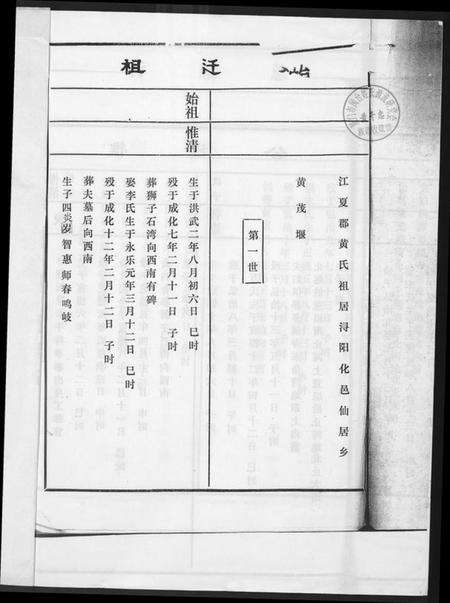 始迁祖
江夏郡黄氏祖居浔阳化邑仙居乡
黄茂堰
第一世
始祖 惟清
生于洪武二年八月初六日 巳时
殁于成化七年二月十一日 子时
葬狮子石湾向西南有碑
娶李氏生于永乐元年三月十二日 巳时
殁于成化十二年二月十二日 子时
葬夫墓后向西南
生子四 智惠 师春 鸣岐